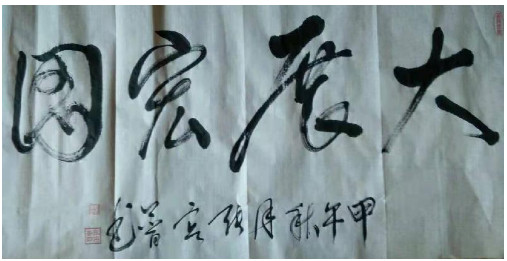 大展宏图
甲午秋月张